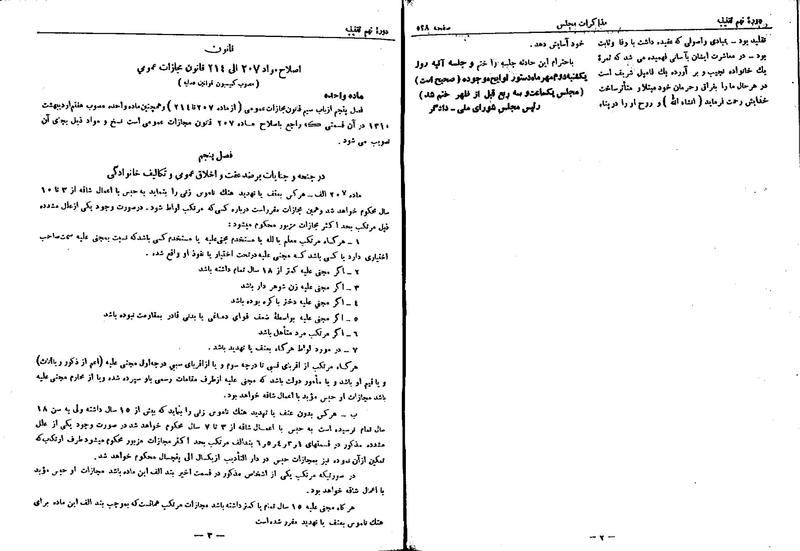 دورهٔ نهم تقنینیه
مذاکرات مجلس
صفحه ۵۲۸
تقلید بود - بنیادی واصولی که عقیده داشت با وفا وثابت
بود - در معاشرت ایشان بآسانی فهمیده می شد که ثمرهٔ
یك خانواده نجیب و بر آورده یك فامیل شریف است
در هرحال ما را بفراق وحرمان خود مبتلا و متأثرساخت
خدایش رحمت فرماید ( انشاء الله ) و روح او را در پناه
خود آسایش دهد.
باحترام این حادثه جلسه را ختم و جلسه آتیه روز
یکشنبه دوم مهرماه دستور لوایح موجوده ( صحیح است )
( مجلس یکساعت و سه ربع قبل از ظهر ختم شد )
رئیس مجلس شورای ملی - دادگر
- ۲ -
دورهٔ نهم تقنینیه
قانون
اصلاح مواد ۲۰۷ الی ۲۱۴ قانون مجازات عمومی
( مصوب کمیسیون قوانین عدلیه )
ماده واحده
فصل پنجم ازباب سیم قانون مجازات عمومی ( ازماده ۲۰۷ تا ۲۱۴ ) و همچنین ماده واحده مصوب هفتم اردیبهشت
۱۳۱۰ در آن قسمتی که راجع باصلاح ماده ۲۰۷ قانون مجازات عمومی است نسخ و مواد ذیل بجای آن
تصویب می شود .
فصل پنجم
در جنحه و جنایات بر ضد عفت و اخلاق عمومی و تکالیف خانوادگی
ماده ۲۰۷ الف - هرکس بعنف یا تهدید هتك ناموس زنی را بنماید به حبس با اعمال شاقه از ۳ تا ۱۰
سال محکوم خواهد شد وهمین مجازات مقرراست درباره کسی که مرتکب لواط شود - درصورت وجود یکی ازعلل مشدده
ذیل مرتکب بحد اکثر مجازات مزبور محکوم میشود :
۱ - هرگاه مرتکب معلم یا لله یا مستخدم مجنی علیه یا مستخدم کسی باشد که نسبت بمجنی علیه سمت صاحب
اختیاری دارد یا کسی باشد کـه مجنی علیه درتحت اختیار یا نفوذ او واقع شده .
۲ - اگر مجنی علیه کمتر از ۱۸ سال تمام داشته باشد
۳ - اگر مجنی علیه زن شوهر دار باشد
۴ - اگر مجنی علیه دختر باکره بوده باشد
۵ - اگر مجنی علیه بواسطهٔ ضعف قوای دماغی یا بدنی قادر بمقاومت نبوده باشد
۶ - اگر مرتکب مرد متأهل باشد
۷ - در مورد لواط هرگاه بعنف یا تهدید باشد .
هرگاه مرتکب از اقربای نسبی تا درجه سوم و یا ازاقربای سببی درجه اول مجنی علیه (اعم از ذکور و یا اناث)
و یا قیم او باشد و یا مأمور دولت باشد که مجنی علیه ازطرف مقامات رسمی باو سپرده شده ویا از محارم مجنی علیه
باشد مجازات او حبس مؤبد با اعمال شاقه خواهد بود.
ب - هرکس بدون عنف یا تهدید هتك ناموس زنی را بنماید که بیش از ۱۵ سال داشته ولی به سن ۱۸
سال تمام نرسیده است به حبس با اعمـال شاقه از ۳ تا ۷ سال محکوم خواهد شد در صورت وجود یکی از علل
مشدده مذکور در قسمتهای ۱ و ۳ و ۴ و ۵ و ۶ بندالف مرتکب بحد اکثر مجازات مزبور محکوم میشود طرف ارتکاب که
تمکین ازآن نموده نیز بمجازات حبس در دار التأدیب ازیکسال الی پنجسال محکوم خواهد شد.
در صورتیکه مرتکب یکی از اشخاص مذکور در قسمت اخیر بند الف این ماده باشد مجازات او حبس مؤبد
با اعمال شاقه خواهد بود .
هر گاه مجنی علیه ۱۵ سال تمام یا کمتر داشته باشد مجازات مرتکب همانست که بموجب بند الف این ماده برای
هتك ناموس بعنف یا تهدید مقرر شده است
- ۳ -